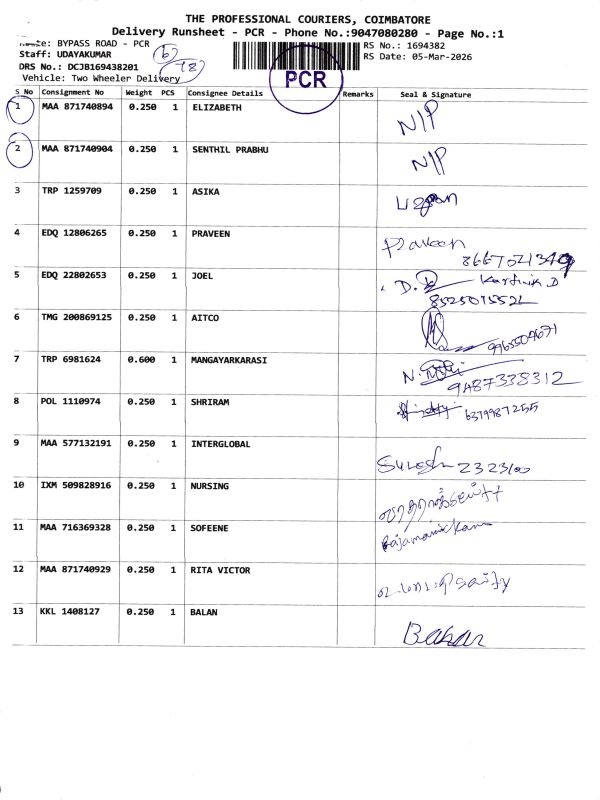 THE PROFESSIONAL COURIERS, COIMBATORE
Delivery Runsheet - PCR - Phone No.:9047080280 - Page No.:1
BYPASS ROAD - PCR
RS No.: 1694382
Staff: UDAYAKUMAR
RS Date: 05-Mar-2026
DRS No.: DCJB169438201
Vehicle: Two Wheeler Delivery
PCR
S No Consignment No Weight PCS Consignee Details Remarks Seal & Signature
1 MAA 871740894 0.250 1 ELIZABETH N/P
2 MAA 871740904 0.250 1 SENTHIL PRABHU N/P
3 TRP 1259709 0.250 1 ASIKA
4 EDQ 12806265 0.250 1 PRAVEEN Praveen
8667021349
5 EDQ 22802653 0.250 1 JOEL Karthik D
8525015522
6 TMG 200869125 0.250 1 AITCO
7 TRP 6981624 0.600 1 MANGAYARKARASI
9487338312
8 POL 1110974 0.250 1 SHRIRAM 6379987255
9 MAA 577132191 0.250 1 INTERGLOBAL Suresh 2323100
10 IXM 509828916 0.250 1 NURSING
11 MAA 716369328 0.250 1 SOFEENE
12 MAA 871740929 0.250 1 RITA VICTOR
13 KKL 1408127 0.250 1 BALAN